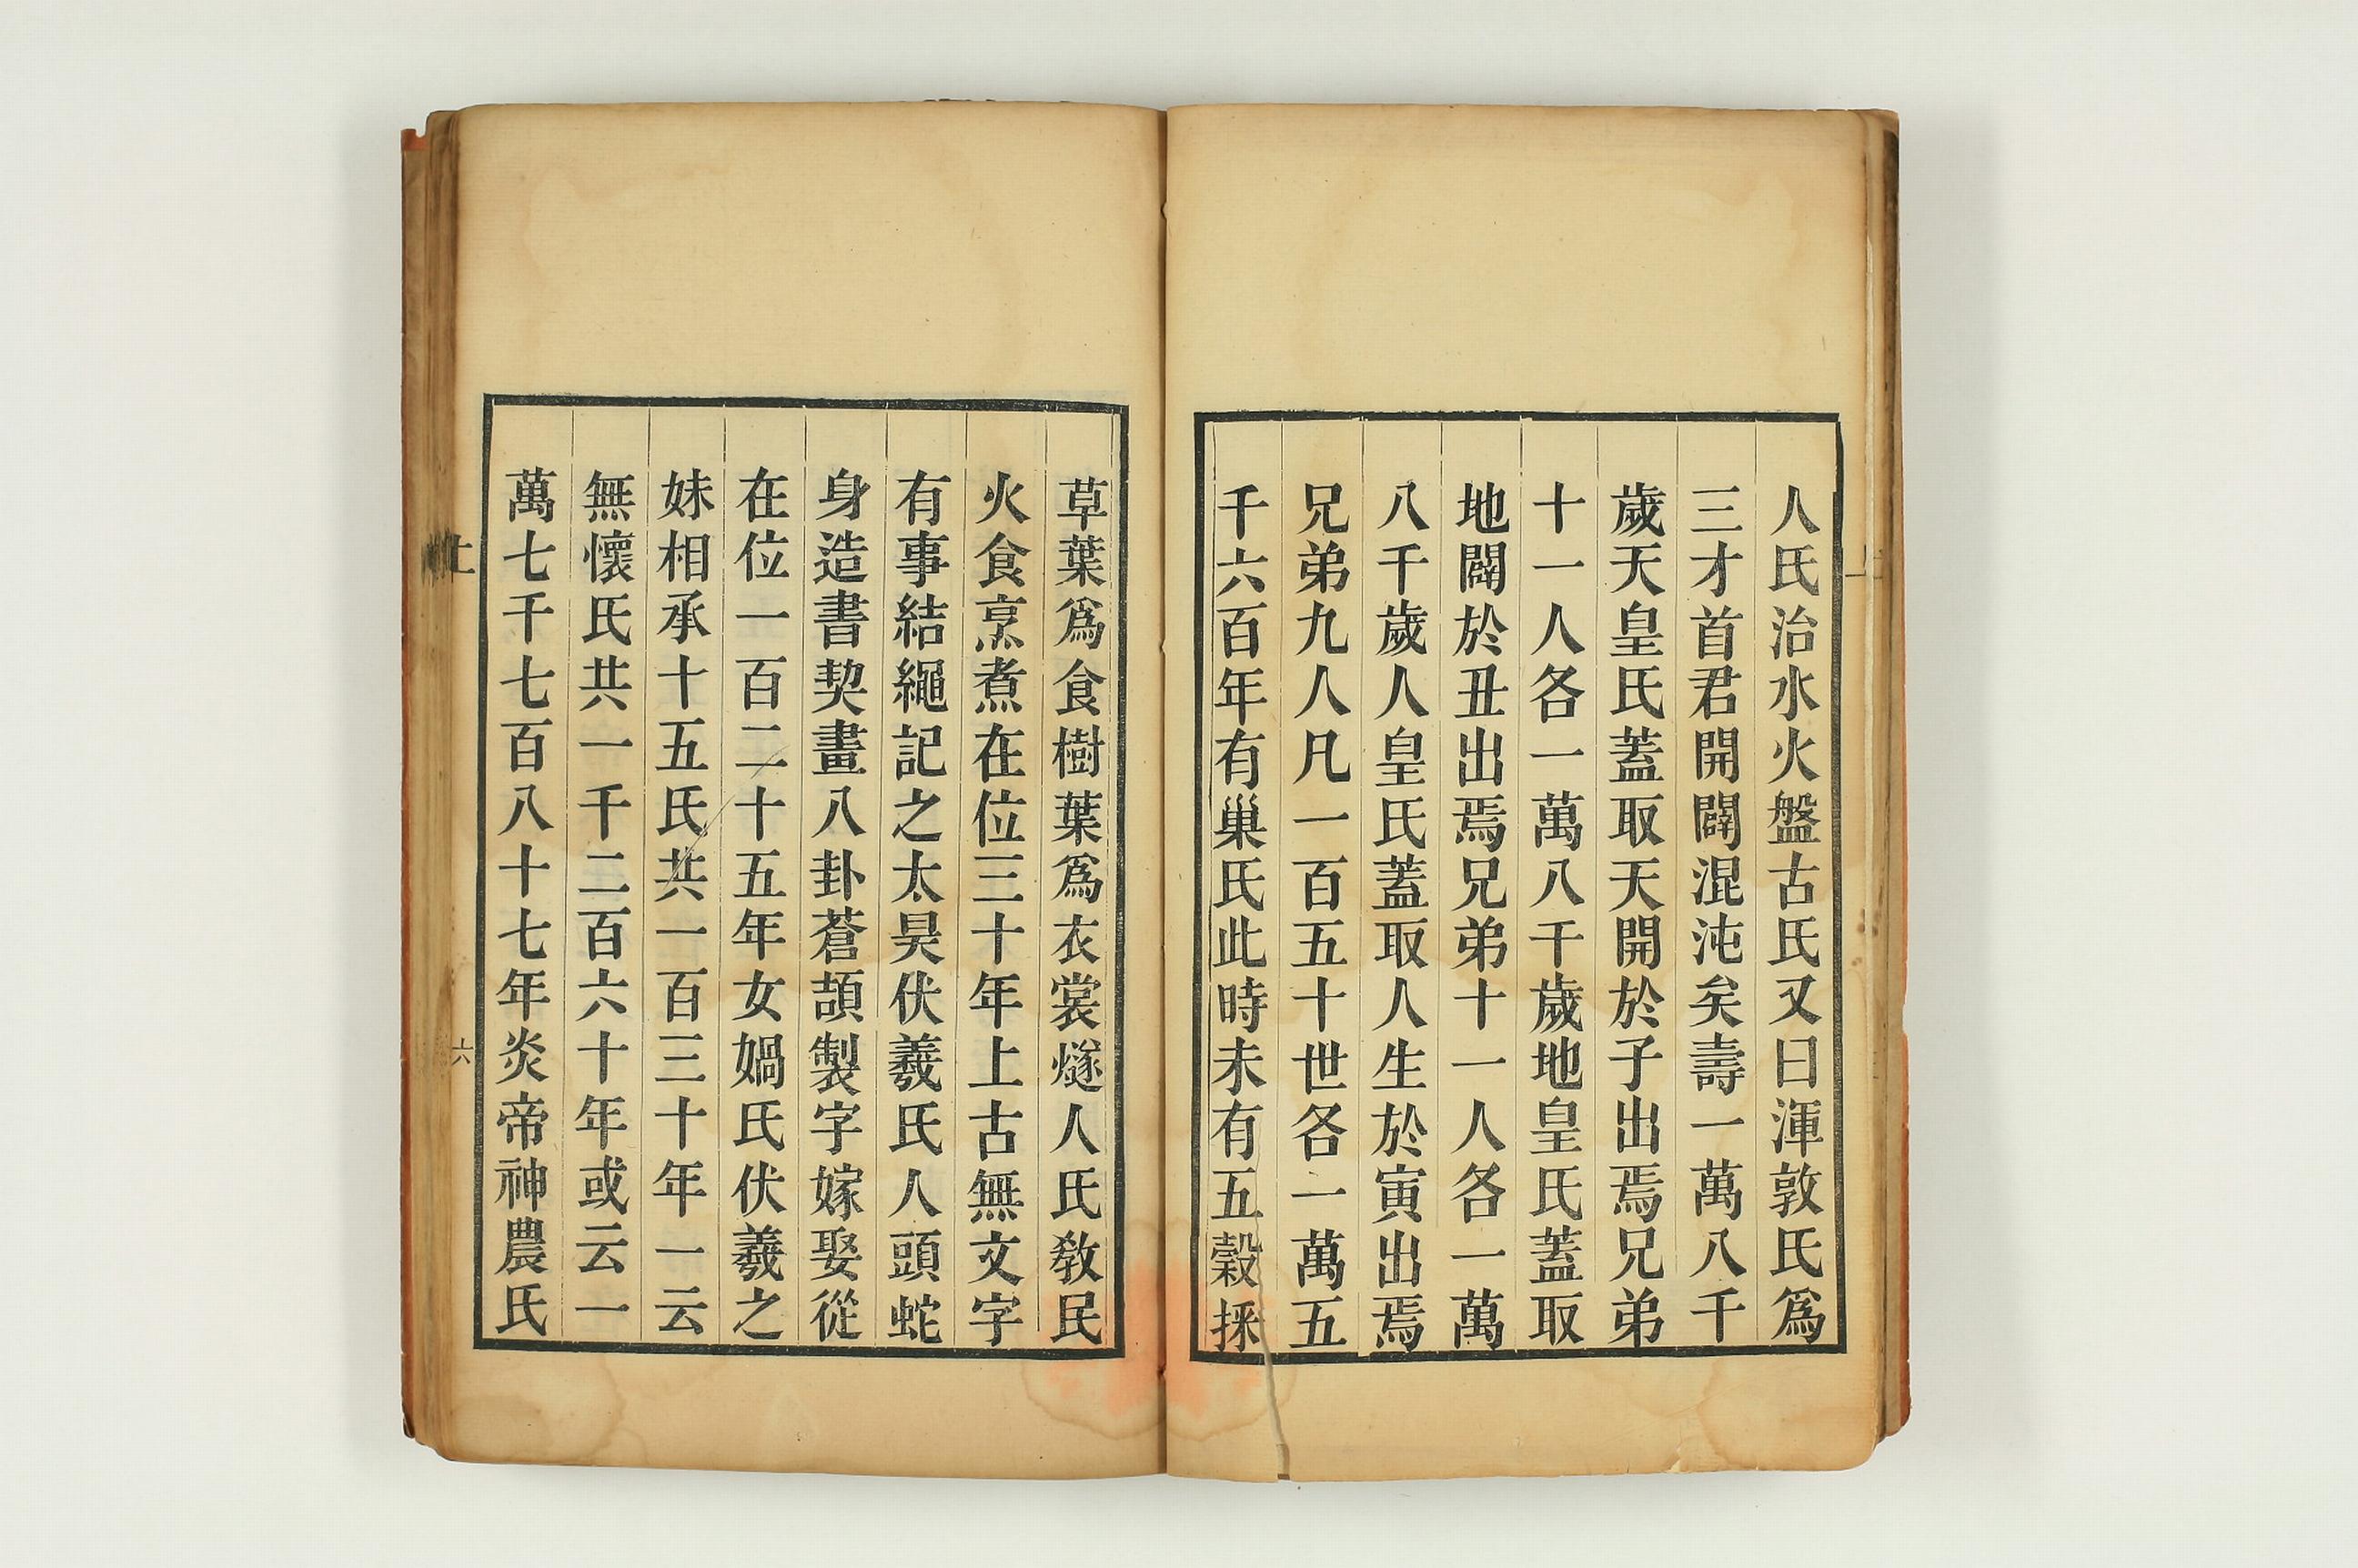 人氏治水火盤古氏又曰渾敦氏爲
三才首君開闢混沌矣壽一萬八千
歲天皇氏蓋取天開於子出焉兄弟
十一人各一萬八千歲地皇氏蓋取
地闢於丑出焉兄弟十一人各一萬
八千歲人皇氏蓋取人生於寅出焉
兄弟九人凡一百五十世各一萬五
千六百年有巢氏此時未有五穀採
草葉爲食樹葉爲衣裳燧人氏敎民
火食烹煮在位三十年上古無文字
有事結繩記之太昊伏羲氏人頭蛇
身造書契畫八卦蒼頡製字嫁娶從
在位一百二十五年女媧氏伏羲之
妹相承十五氏共一百三十年一云
無懷氏共一千二百六十年或云一
萬七千七百八十七年炎帝神農氏
上
六